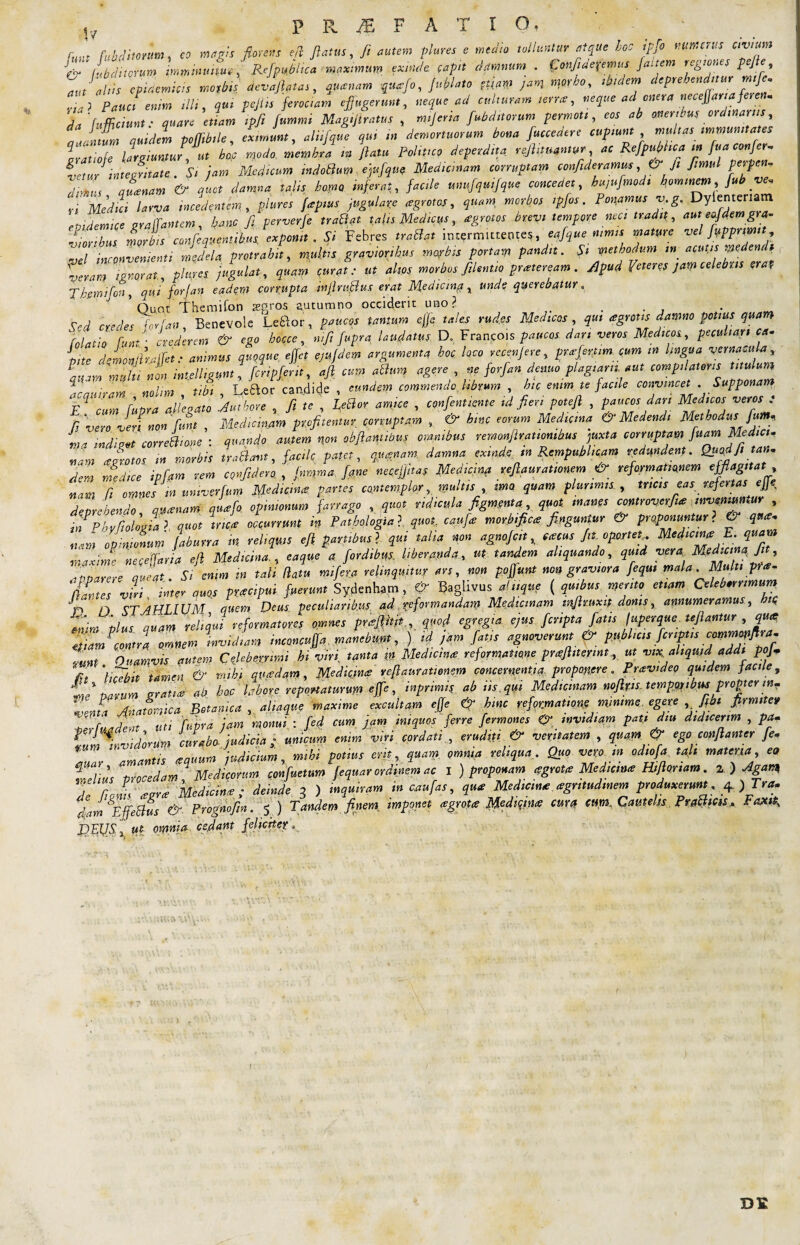 iv PRÆFATIO.
sunt subditorum, eo magis florens est status, si autem plures e medio tolluntur atque hoc ipso numerus civium
& subditorum imminuitur, Respublica maximum exinde capit damnum. Consideremus saltem regiones peste,
aut aliis epidemicis morbis devastatas, quænam quæso, sublato etiam jam morbo, ibidem deprehenditur mise-
ria? Pauci enim illi, qui pestis ferociam effugerunt, neque ad culturam terræ, neque ad onera necessaria feren-
da sufficiunt: quare etiam ipsi summi Magistratus, miseria subditorum permoti, eos ab oneribus ordinariis,
quantum quidem possibile, eximunt, aliisque qui in demortuorum bona succedere cupiunt, multas immunitates
gratiose largiuntur, ut hoc modo membra in statu Politico deperdita restituantur, ac Respublica in sua conser-
vetur integritate. Si jam Medicum indoctum ejusque Medicinam corruptam consideramus, & si simul perpen-
dimus, quænam & quot damna talis homo inferat, facile unusquisque concedet, hujusmodi hominem, sub ve-
ri Medici larva incedentem, plures sæpius jugulare ægrotos, quam morbos ipsos. Ponamus v.g. Dysenteriam
epidemice grassantem, hanc si perverse tractat talis Medicus, ægrotos brevi tempore neci tradit, aut eosdem gra-
vioribus morbis consequentibus exponit. Si Febres tractat intermittentes, easque nimis mature vel supprimit,
vel inconvenienti medela protrahit, multis gravioribus morbis portam pandit. Si methodum in acutis medendi
veram ignorat, plures jugulat, quam curat: ut alios morbos silentio præteream. Apud Veteres jam celebris erat
Themison, qui forsan eadem corrupta instructus erat Medicina, unde querebatur.
Quot Themison ægros autumno occiderit uno?
Sed credes forsan, Benevole Lector, paucos tantum esse tales rudes Medicos, qui ægrotis damno potius quam
solatio sunt; crederem & ego hocce, nisi supra laudatus D. François paucos dari veros Medicos, peculiari ca-
pite demonstrasset: animus quoque esset ejusdem argumenta hoc loco recensere, præsertim cum in lingua vernacula,
quam multi non intelligunt, scripserit, ast cum actum agere, ne forsan denuo plagiarii aut compilatoris titulum
acquiram, nolim, tibi, Lector candide, eundem commendo librum, hic enim te facile convincet. Supponam
E. cum supra allegato Authore, si te, Lector amice, consentiente id fieri potest, paucos dari Medicos veros:
si vero veri non sunt, Medicinam profitentur corruptam, & hinc eorum Medicina & Medendi Methodus sum-
ma indiget correctione: quando autem non obstantibus omnibus remonstrationibus juxta corruptam suam Medici-
nam ægrotos in morbis tractant, facile patet, quænam damna exinde in Rempublicam redundent. Quod si tan-
dem medice ipsam rem considero, summa sane necessitas Medicinæ restaurationem & reformationem efflagitat,
nam si omnes in universum Medicinæ partes contemplor, multis, imo quam plurimis, tricis eas refertas esse
deprehendo, quænam quæso opinionum farrago, quot ridicula figmenta, quot inanes controversiæ inveniuntur,
in Physiologia? quot tricæ occurrunt in Pathologia? quot causæ morbificæ finguntur & proponuntur? & quæ-
nam opinionum saburra in reliquis est partibus? qui talia non agnoscit, cæcus sit oportet. Medicinæ E. quam
maxime necessaria est Medicina, eaque a sordibus liberanda, ut tandem aliquando, quid vera Medicina sit,
apparere queat. Si enim in tali statu misera relinquitur ars, non possunt non graviora sequi mala. Multi præ-
stantes viri, inter quos præcipui fuerunt Sydenham, & Baglivus aliique (quibus merito etiam Celeberrimum
D. D. STAHLIUM, quem Deus peculiaribus ad reformandam Medicinam instruxit donis, annumeramus, hic
enim plus quam reliqui reformatores omnes præstitit, quod egregia ejus scripta satis superque testantur, quæ
etiam contra omnem invidiam inconcussa manebunt,) id jam satis agnoverunt & publicis scriptis commonstra-
runt. Quamvis autem Celeberrimi hi viri tanta in Medicinæ reformatione præstiterint, ut vix aliquid addi pos-
sit, licebit tamen & mihi quædam, Medicinæ restaurationem concernentia proponere. Prævideo quidem facile,
me parum gratiæ ab hoc labore reportaturum esse, inprimis ab iis qui Medicinam nostris temporibus propter in-
venta Anatomica Botanica, aliaque maxime excultam esse & hinc reformatione minime egere, sibi firmiter
persuadent, uti supra jam monui: sed cum jam iniquos ferre sermones & invidiam pati diu didicerim, pa-
rum invidorum curabo judicia; unicum enim viri cordati, eruditi & veritatem, quam & ego constanter se-
quar, amantis æquum judicium, mihi potius erit, quam omnia reliqua. Quo vero in odiosa tali materia, eo
melius procedam, Medicorum consuetum sequar ordinem ac 1) proponam ægrotæ Medicinæ Historiam. 2) Agam
de signis ægræ Medicinæ; deinde 3) inquiram in causas, quæ Medicinæ ægritudinem produxerunt. 4) Tra-
dam Effectus & Prognosin. 5) Tandem finem imponet ægrotæ Medicinæ cura cum Cautelis Practicis. Faxit
DEUS, ut omnia cedant feliciter.
DE